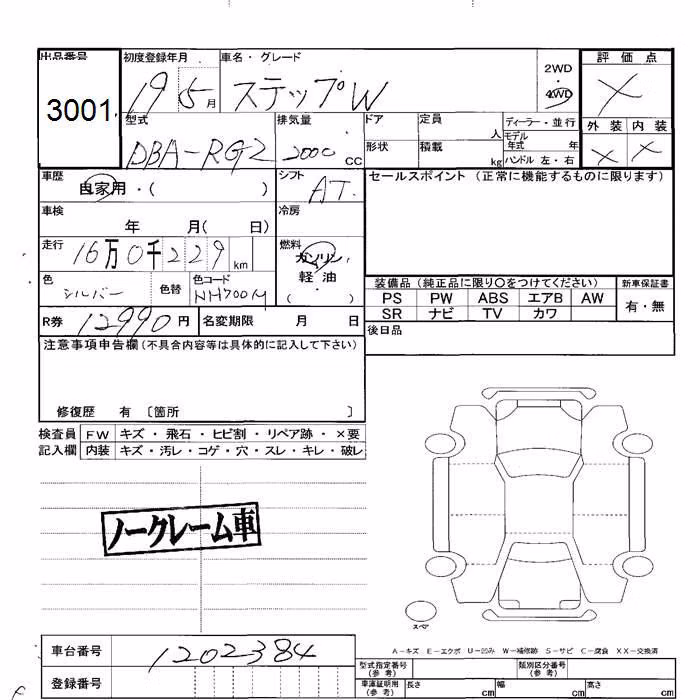 出品番号 初度登録年月 車名・グレード 2WD 評価点
3001 19 5月 ステップW 4WD ×
型式 排気量 ドア 定員 人 ディーラー・並行 外装 内装
DBA-RG2 2000 CC 形状 積載 kg モデル年式 年 × ×
ハンドル 左・右
車歴 自家用・( ) シフト AT セールスポイント (正常に機能するものに限ります)
車検 年 月( 日) 冷房
走行 16万0千229km 燃料 ガソリン・
軽油
( )
色 シルバー 色替 色コード NH700M
装備品 (純正品に限り○をつけてください) 新車保証書
PS PW ABS エアB AW 有・無
SR ナビ TV カワ
R券 12990円 名変期限 月 日 後日品
注意事項申告欄(不具合内容等は具体的に記入して下さい)
修復歴 有 〔箇所 〕
検査員 FW キズ・飛石・ヒビ割・リペア跡・×要
記入欄 内装 キズ・汚レ・コゲ・穴・スレ・キレ・破レ
ノークレーム車
スペア
A-キズ E-エクボ U-凹み W-補修跡 S-サビ C-腐食 XX-交換済
車台番号 1202384
登録番号
型式指定番号(参考) 類別区分番号(参考)
車庫証明用(参考) 長さ cm 幅 cm 高さ cm